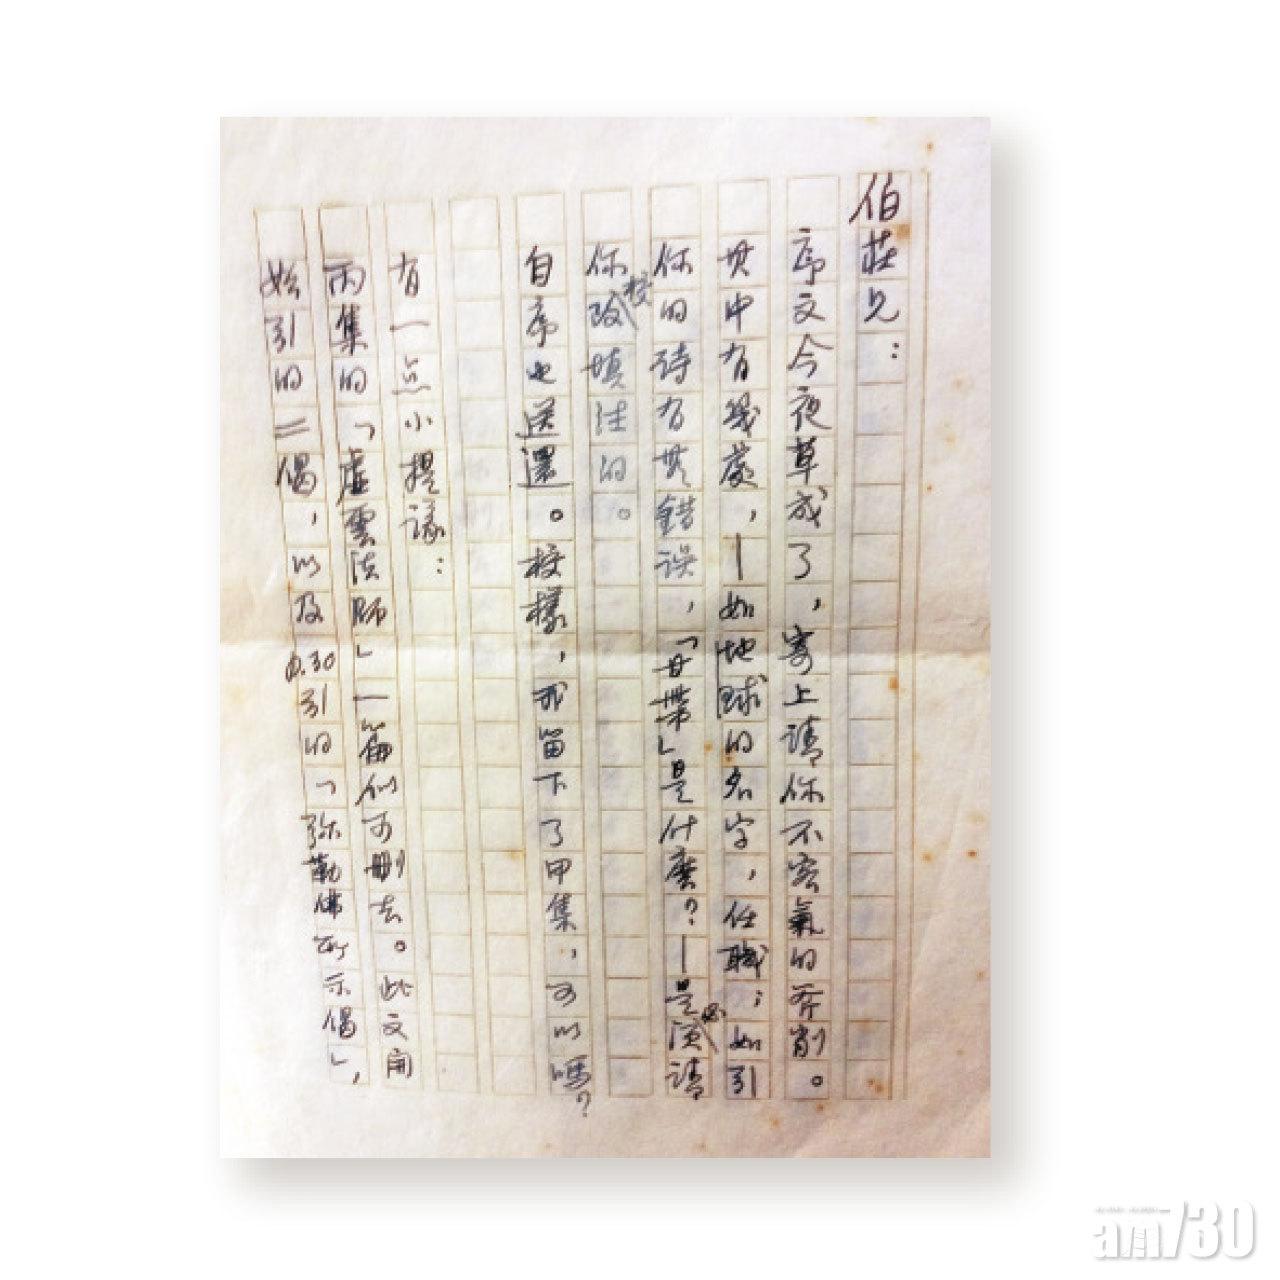 伯莊兄：
序文今夜草成了，寄上請你不客氣的斧削。
其中有幾處，—如地球的名字，任職；如引
你的詩有其錯誤，「廿世常」是什麼？—是必須請
你校改填注的。
自序也送還。校樣，我留下了甲集，可以嗎？
有一点小提議：
丙集的「虛雲法師」一篇似可刪去。此文開
始引的二偈，以及p.30引的「弥勒佛所示偈」，
am730